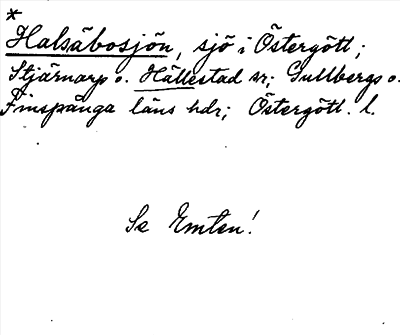 *
Halsäbosjön, sjö i Östergötl;
Stjärnarp o. Hällestad sr; Gullbergs o.
Finspånga läns hdr; Östergötl. l.
Se Emten!